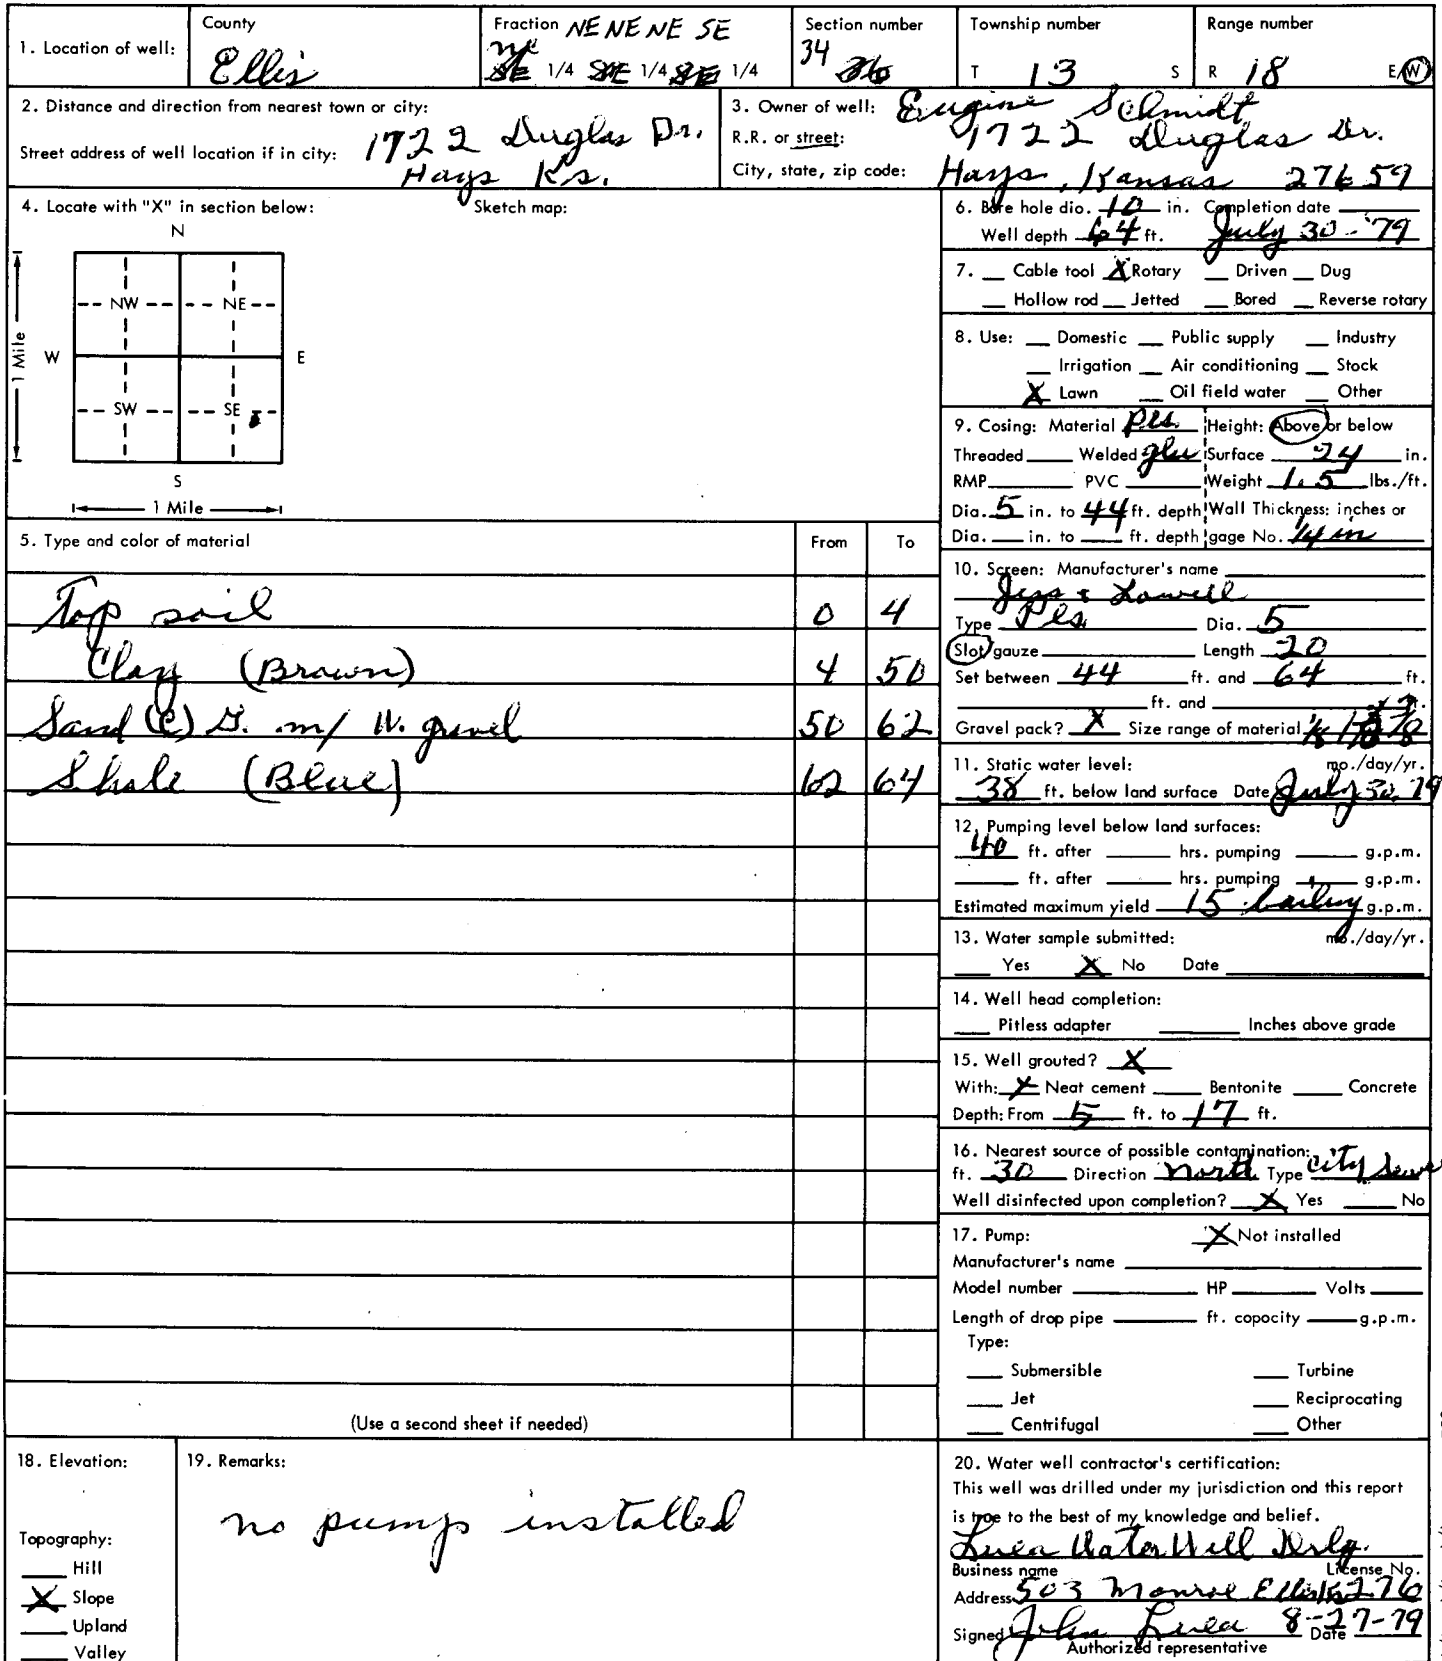 1. Location of well:
County
Ellis
Fraction NE NE NE SE
1/4 1/4 1/4
Section number
34
Township number
T 13 S
Range number
R 18 E/W
2. Distance and direction from nearest town or city:
Street address of well location if in city: 1722 Duglas Dr.
Hays Ks.
3. Owner of well: Eugine Schmidt
R.R. or street: 1722 Duglas Dr.
City, state, zip code: Hays, Kansas 27659
4. Locate with "X" in section below:
Sketch map:
N
NW NE
W E
SW SE
S
1 Mile
1 Mile
5. Type and color of material From To
Top soil 0 4
Clay (Brown) 4 50
Sand (C) G. m/ W. gravel 50 62
Shale (Blue) 62 64
(Use a second sheet if needed)
6. Bore hole dio. 10 in. Completion date
Well depth 64 ft. July 30-'79
7. Cable tool X Rotary Driven Dug
Hollow rod Jetted Bored Reverse rotary
8. Use: Domestic Public supply Industry
Irrigation Air conditioning Stock
X Lawn Oil field water Other
9. Cosing: Material Pls. Height: Above or below
Threaded Welded glu Surface 24 in.
RMP PVC Weight 1.5 lbs./ft.
Dia. 5 in. to 44 ft. depth Wall Thickness: inches or
Dia. in. to ft. depth gage No. 1/4 in
10. Screen: Manufacturer's name
Jess & Lowell
Type Pls. Dia. 5
Slot/gauze Length 20
Set between 44 ft. and 64 ft.
ft. and ft.
Gravel pack? X Size range of material
11. Static water level: mo./day/yr.
38 ft. below land surface Date July 30, 79
12. Pumping level below land surfaces:
40 ft. after hrs. pumping g.p.m.
ft. after hrs. pumping g.p.m.
Estimated maximum yield 15 g.p.m.
13. Water sample submitted: mo./day/yr.
Yes X No Date
14. Well head completion:
Pitless adapter Inches above grade
15. Well grouted? X
With: X Neat cement Bentonite Concrete
Depth: From 5 ft. to 17 ft.
16. Nearest source of possible contamination:
ft. 30 Direction North Type City Sewer
Well disinfected upon completion? X Yes No
17. Pump: X Not installed
Manufacturer's name
Model number HP Volts
Length of drop pipe ft. copocity g.p.m.
Type:
Submersible Turbine
Jet Reciprocating
Centrifugal Other
18. Elevation:
Topography:
Hill
X Slope
Upland
Valley
19. Remarks:
no pump installed
20. Water well contractor's certification:
This well was drilled under my jurisdiction ond this report
is true to the best of my knowledge and belief.
Luea Water Well Drlg.
Business name License No.
Address 503 Monroe Ellis Ks 276
Signed John Luea 8-27-79
Date
Authorized representative